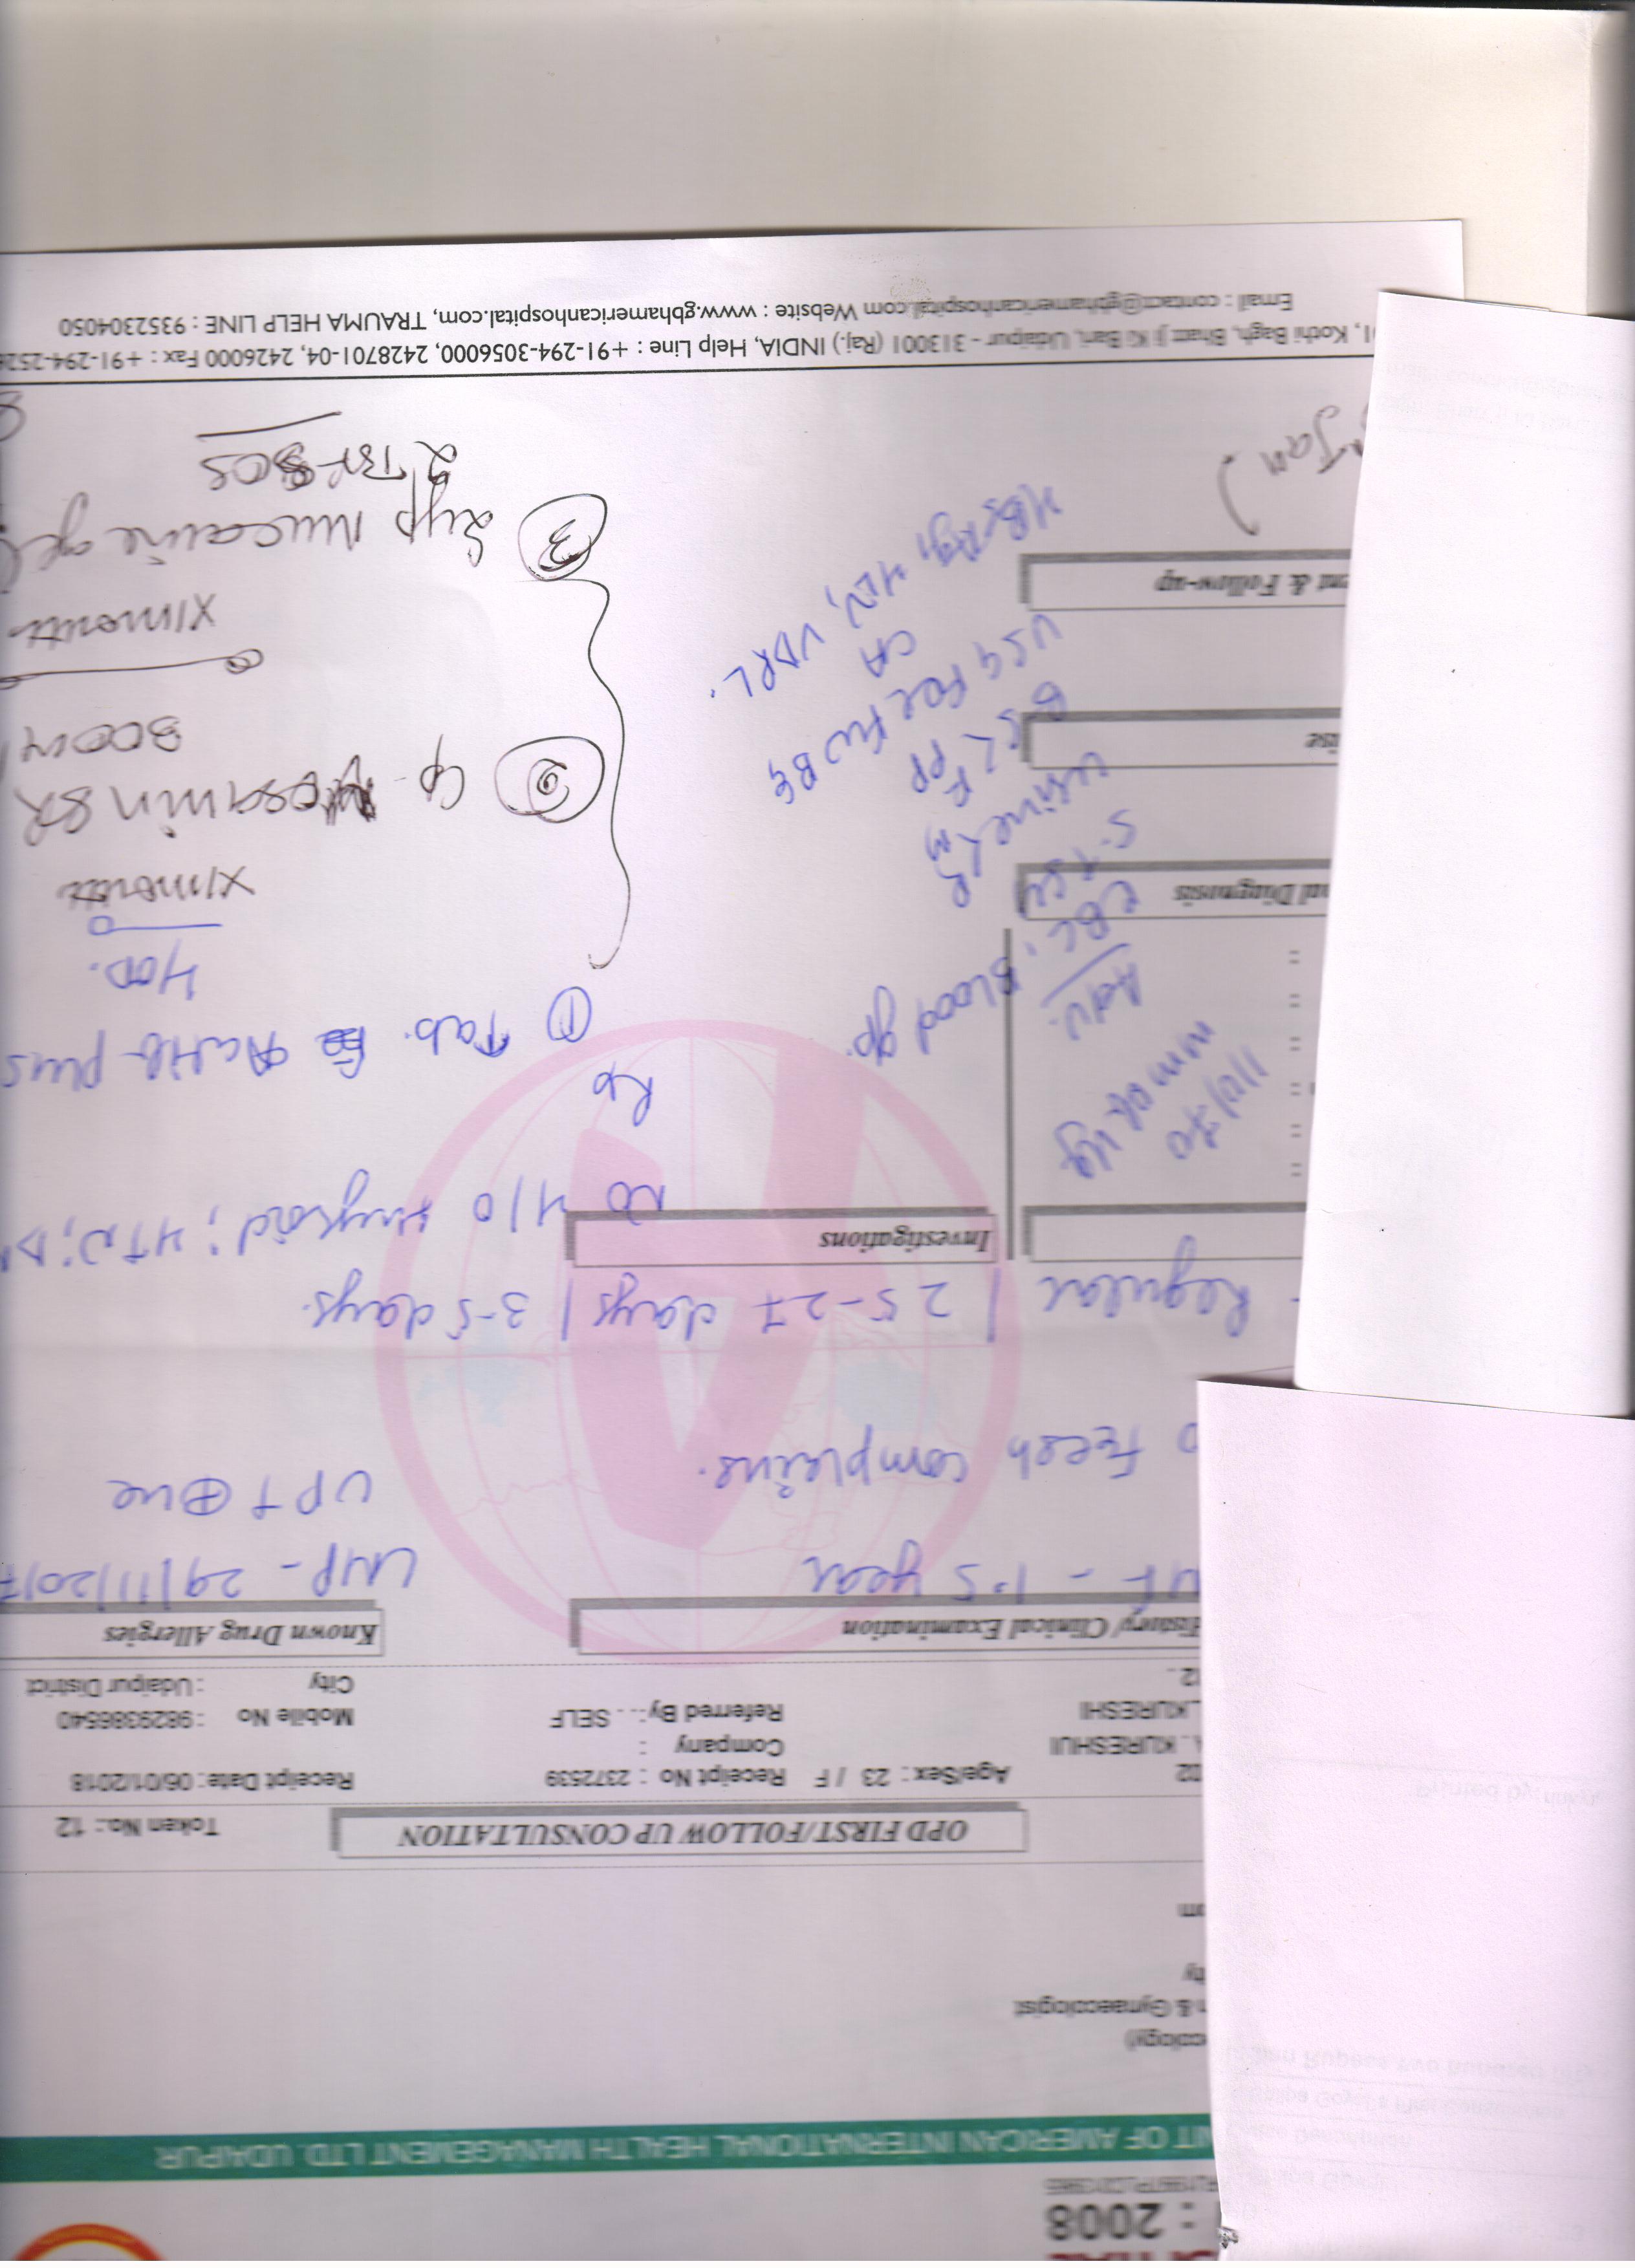 : 2008
NT OF AMERICAN INTERNATIONAL HEALTH MANAGEMENT LTD. UDAIPUR
ecology)
n & Gynaecologist
ty
om
OPD FIRST/FOLLOW UP CONSULTATION
Token No.: 12
02
Age/Sex : 23 / F
Receipt No : 2372539
Receipt Date: 06/01/2018
. KURESHUI
Company :
.KURESHI
Referred By:... SELF
Mobile No : 9829386540
12 .
City : Udaipur District
History/ Clinical Examination
Known Drug Allergies
- 1.5 year
LMP - 29/11/2017
UPT ⊕ve
Fresh complains.
- Regular / 25-27 days / 3-5 days.
Investigations
No H/O thyroid; HTN; D
110/70
mm of Hg
Rx
① Tab. Actib-plus
HOD.
X1month
Adv.
CBC, Blood gp.
S-TSH
Urine R
M
BSL F
PP
USG For FWBG
CA
HBsAg, HIV, VDRL.
nal Diagnosis
ise
nt & Follow-up
② Cp SR
300mg
X1month
③ Syp Mucaine gel
2 TSF SOS
1, Kothi Bagh, Bhatt Ji Ki Bari, Udaipur - 313001 (Raj.) INDIA, Help Line : +91-294-3056000, 2428701-04, 2426000 Fax : +91-294-252
Email : contact@gbhamericanhospital.com Website : www.gbhamericanhospital.com, TRAUMA HELP LINE : 9352304050